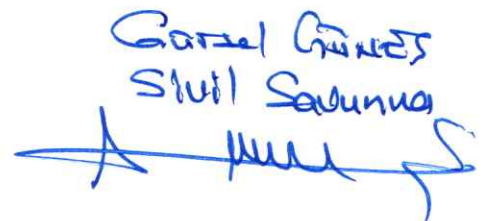 Gürsel GÜNEŞ
Sivil Savunma